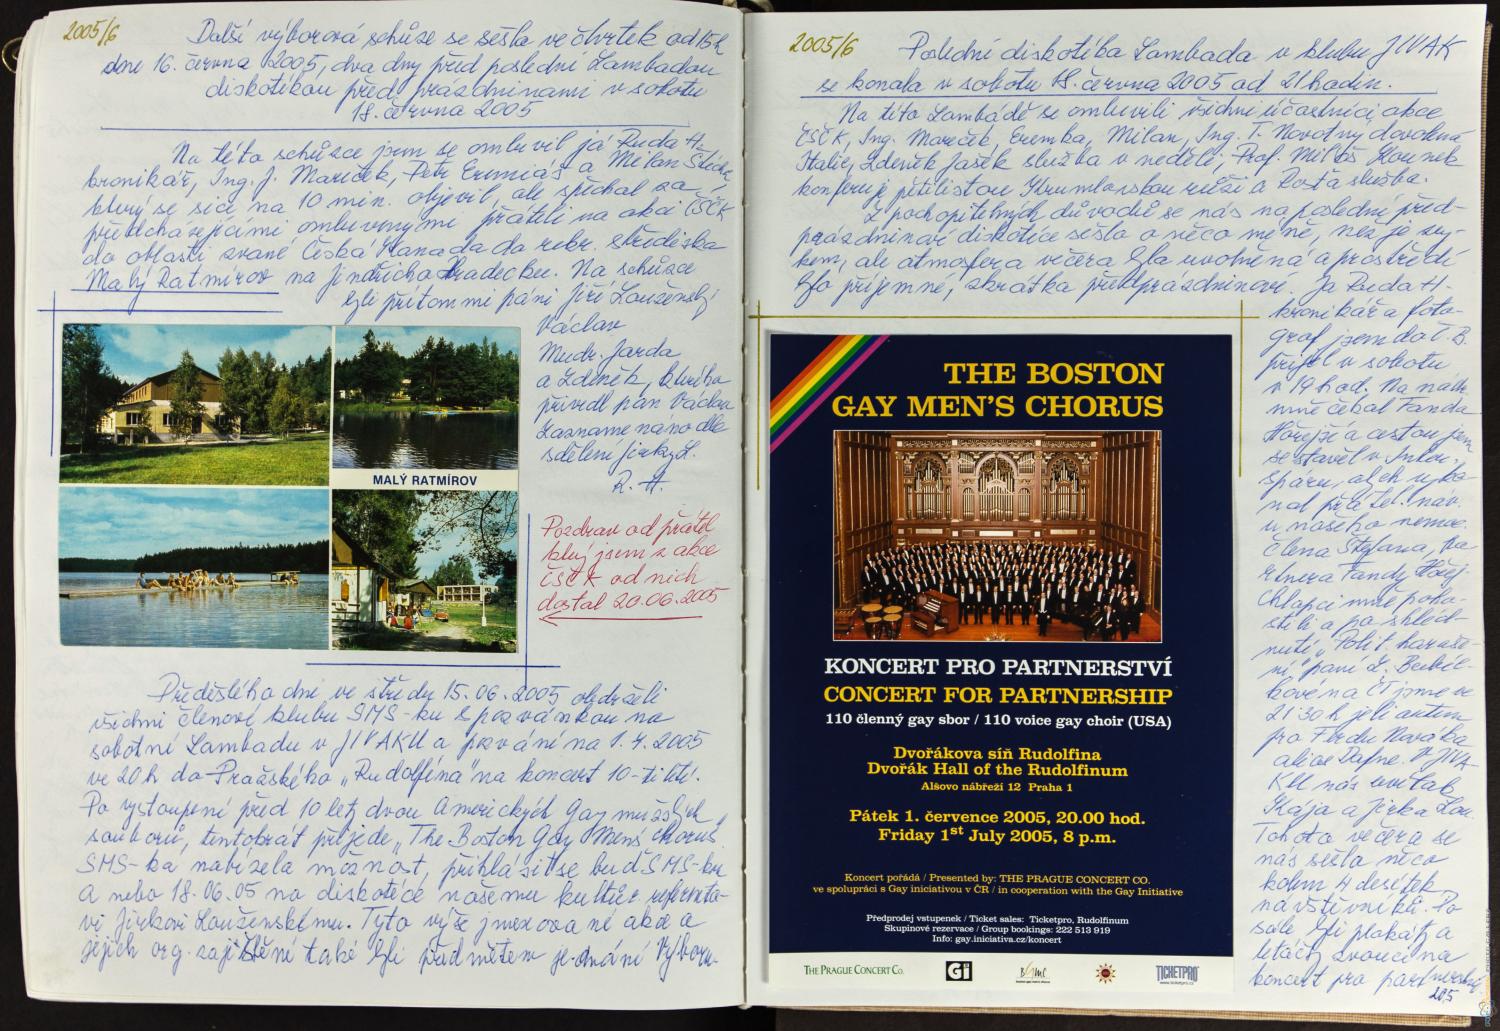 2005/6
Další výborová schůze se sešla ve čtvrtek od 15h
dne 16. června 2005, dva dny před poslední Lambadou
diskotékou před prázdninami v sobotu
18. června 2005
Na této schůzce jsem se omluvil já Ruda H.
kronikář, Ing. J. Mareček, Petr a Milan
který se sice na 10 min. objevil, ale spěchal za
předcházejícími omluvenými přáteli na akci ČSČK
do oblasti zvané Česká Kanada do rekr. střediska
Malý Ratmírov na Jindřichohradecku. Na schůzce
byli přítomni páni Jiří Louženský
Václav
Mudr. Jarda
a Zdeněk, kterého
přivedl pan Václav
Zaznamenáno dle
sdělení Jirky L.
R. H.
MALÝ RATMÍROV
Pozdrav od přátel
který jsem z akce
ČSČK od nich
dostal 20.06.2005
Předešlého dne ve středu 15.06.2005 obdrželi
všichni členové klubu SMS-ku s pozvánkou na
sobotní Lambadu v JIVAKU a pozvání na 1.7.2005
ve 20h do Pražského „Rudolfina" na koncert 10-ti letí.
Po vystoupení před 10 lety dvou Amerických Gay mužských
souborů, tentokrát přijede „The Boston Gay Mens chorus"
SMS-ka nabízela možnost, přihlásit se buď SMS-ku
a nebo 18.06.05 na diskotéce našemu kultur. referenta-
vi Jirkovi Louženskému. Tyto výše jmenované akce a
jejich org. zajištění také byli předmětem jednání Výboru.
2005/6
Poslední diskotéka Lambada v klubu JIVAK
se konala v sobotu 18. června 2005 od 21 hodin.
Na této Lambádě se omluvili všichni účastníci akce
ČSČK, Ing. Mareček, Eremka, Milan, Ing. T. Novotný dovolená
Itálie, Zdeněk Jasék služba v neděli, Prof. Miloš
konferuje pětilistou Krumlovskou růži a Rosťa služba.
Z pochopitelných důvodů se nás na poslední před-
prázdninové diskotéce sešlo o něco méně, než je zvy-
kem, ale atmosféra večera byla uvolněná a prostředí
bylo příjemné, zkrátka předprázdninové. Já Ruda H.
kronikář a foto-
graf jsem do Č.B.
přijel v sobotu
v 19 hod. Na nádr.
mně čekal Fanda
Hořejší a cestou jsem
se stavěl v Inter-
sparu, abych vyko-
nal přátel. náv.
u našeho nemoc.
člena Štefana, pa
rtnera Fandy Hořej.
Chlapci mně poho-
stili a po shléd-
nutí „Polit. harašé-
ní" paní Z. Bubíl-
kové na ČT jsme ve
21 30 h jeli autem
pro Ferdu Nováka
alias Dafne. V JIVA-
KU nás uvítal
Kája a Jirka Lou.
Tohoto večera se
nás sešlo něco
kolem 4 desítek
návštěvníků. Po
sále byli plakáty a
letáčky zvoucí na
koncert pro partnerství.
205
THE BOSTON
GAY MEN'S CHORUS
KONCERT PRO PARTNERSTVÍ
CONCERT FOR PARTNERSHIP
110 členný gay sbor / 110 voice gay choir (USA)
Dvořákova síň Rudolfina
Dvořák Hall of the Rudolfinum
Alšovo nábřeží 12 Praha 1
Pátek 1. července 2005, 20.00 hod.
Friday 1st July 2005, 8 p.m.
Koncert pořádá / Presented by: THE PRAGUE CONCERT CO.
ve spolupráci s Gay iniciativou v ČR / in cooperation with the Gay Initiative
Předprodej vstupenek / Ticket sales: Ticketpro, Rudolfinum
Skupinové rezervace / Group bookings: 222 513 919
Info: gay.iniciativa.cz/koncert
THE PRAGUE CONCERT CO.
Gi
TICKETPRO
www.ticketpro.cz